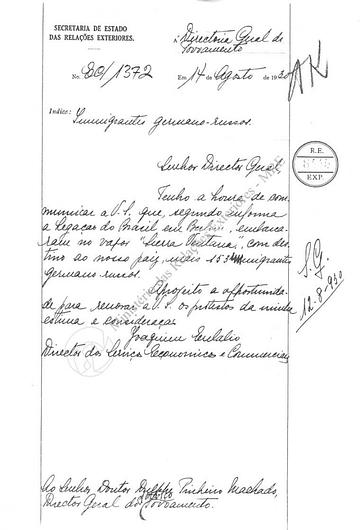 SECRETARIA DE ESTADO
DAS RELAÇÕES EXTERIORES.
À Directoria Geral do
Povoamento
No. 80/1372
Em 14 Agosto de 1930
Indice: Immigrantes germano-russos.
Senhor Director Geral
Tenho a honra de com-
municar a V. S. que, segundo informa
a Legação do Brasil em Berlim, embarca-
ram no vapor "Sierra Ventana", com des-
tino ao nosso paiz, mais 153 immigrantes
germano-russos.
Aproveito a opportunida-
de para renovar a V. S. os protestos da minha
estima e consideração.
Joaquim Eulalio
Director dos Serviços Economicos e Commerciaes
Ao Senhor Doutor Dulphe Pinheiro Machado,
Director Geral do Povoamento.
R.E.
EXP
S.G.
12-8-930
Ministério das Relações Exteriores - MRE